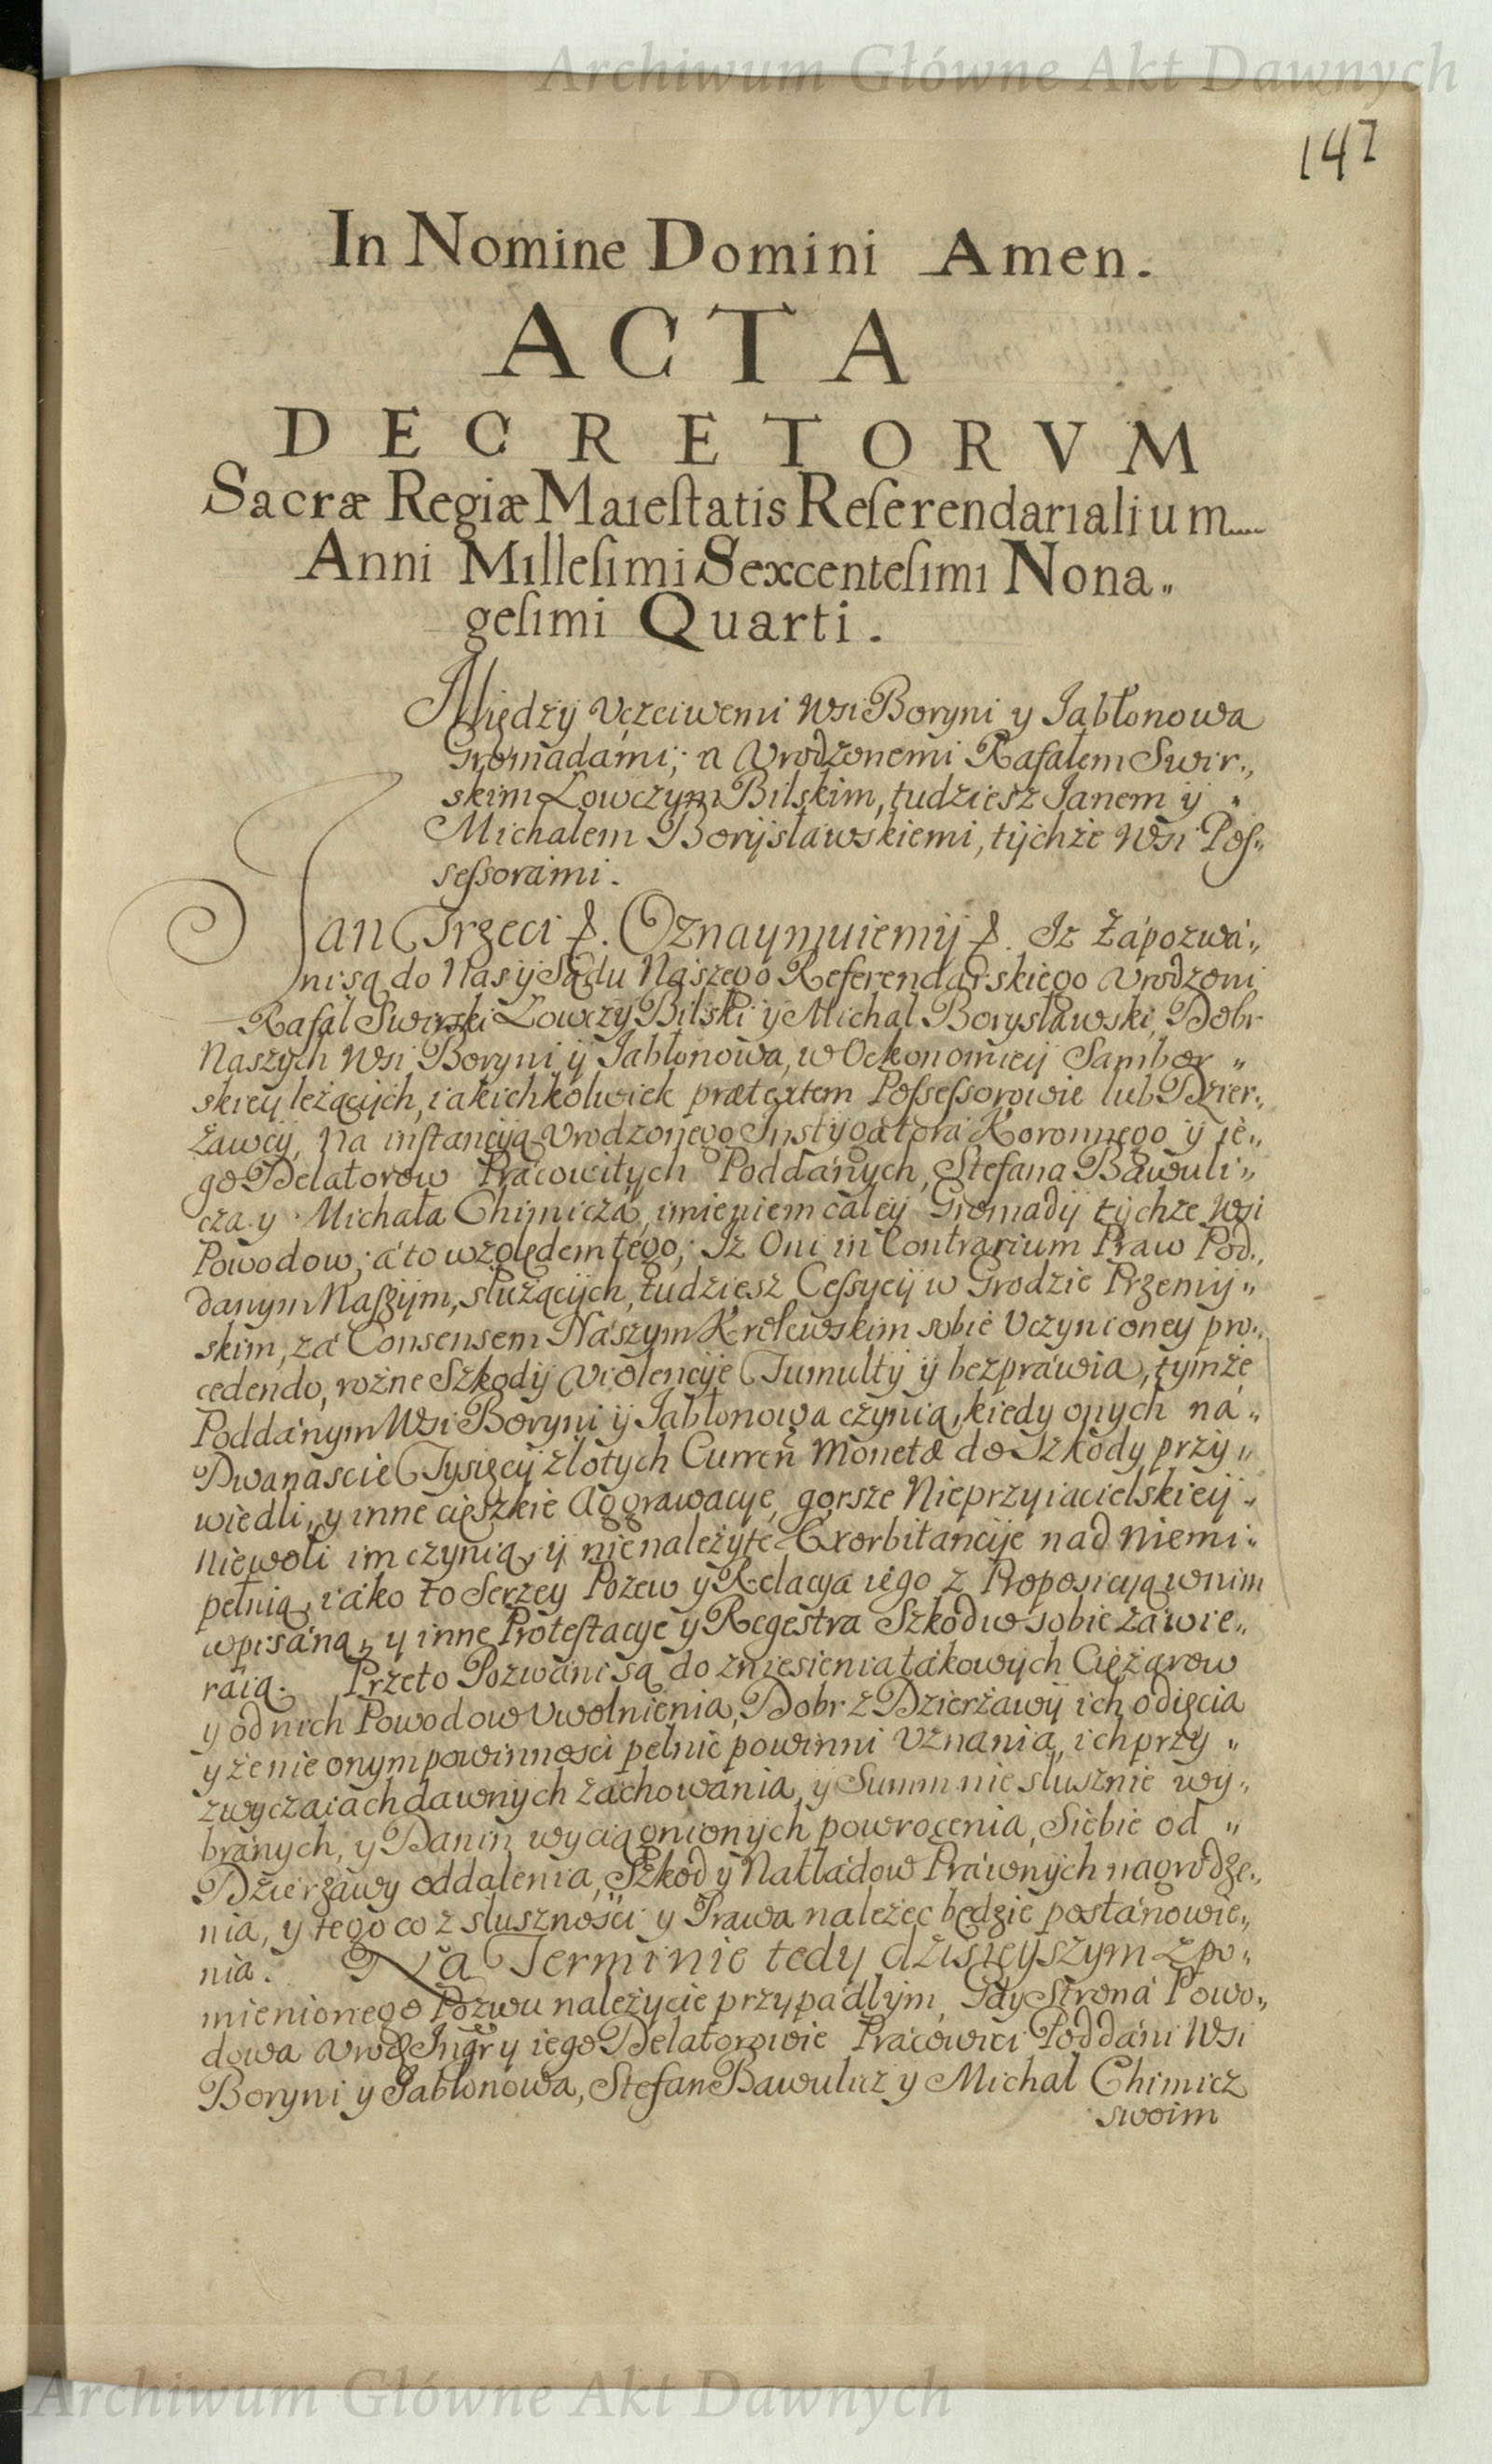 Archiwum Główne Akt Dawnych
147
In Nomine Domini Amen.
ACTA
DECRETORVM
Sacræ Regiæ Maieſtatis Reſerendarialium....
Anni Milleſimi Sexcenteſimi Nona„
geſimi Quarti.
Między Vczciwemi Wsi Boryni y Jabłonowa
Gromadámi; a Vrodzonemi Rafałem Swir„
skim Łowczym Bilskim, tudziesz Janem y
Michałem Boryjsławskiemi, tychże Wsi Poſ„
seſsorámi.
Jan Trzeci &. Oznaymuiemy &. Iż Zápozwá„
ni są do Nas y Sądu Nászego Referendarskiego Vrodzoni
Rafał Swirski Łowczy Bilski y Michał Borysławski, Dobr
Naszych Wsi Boryni y Jabłonowa, w Oekonomiey Sambor„
skiey leżących, iakichkolwiek prætextem Poſseſsorowie lub Dzier„
żawcy, Na inſtancyą Vrodzonego Instygatorá Koronnego y ie„
go Delatorow Prácowitych Poddánych, Stefana Bawuli„
cza y Michała Chimiczá, imieniem całey Gromady tychże Wsi
Powodow; á to względem tego; Iż Oni in Contrarium Praw Pod„
danym Naſzym, służących, tudziesz Ceſsycy w Grodzie Przemy„
skim, zá Consensem Nászym Krolewskim sobie Vczynioney pro„
cedendo, rożne Szkody Violencye Tumulty y bezpráwia, tymże
Poddánym Wsi Boryni y Jabłonowa czynią, kiedy onych ná„
Dwanascie Tysięcy złotych Curren Monetæ do Szkody przy„
wiedli, y inne cięszkie Aggrawacye, gorsze Nieprzyiacielskiey
niewoli im czynią, y nienależyte Exorbitancye nad niemi
pełnią, iáko to Serzey Pozew y Relacya iego z Propozycyą w nim
wpisáną, y inne Proteſtacye y Regestra Szkod w sobie záwie„
ráią. Przeto Pozwáni są do zniesienia tákowych Ciężarow
y od nich Powodow Vwolnienia, Dobr z Dzierżawy ich odięcia
y że nie onym powinności pełnić powinni Vznania, ich przy„
zwyczaiach dawnych záchowánia, y Summ niesłusznie wy„
bránych, y Danin wyciągnionych powrocenia, Siebie od„
Dzierżawy oddalenia, Szkod y Nakładow Práwnych nagrodze„
nia, y tego co z słusznośći y Prawa należeć będzie postánowie„
nia. Na Terminie tedy dzisieyszym z po„
mienionego Pozwu należycie przypádłym, Gdy Stroná Powo„
dowa Vrod Ingr y iego Delatorowie Prácowici Poddáni Wsi
Boryni y Jabłonowa, Stefan Bawulicz y Michał Chimicz
swoim
Archiwum Główne Akt Dawnych